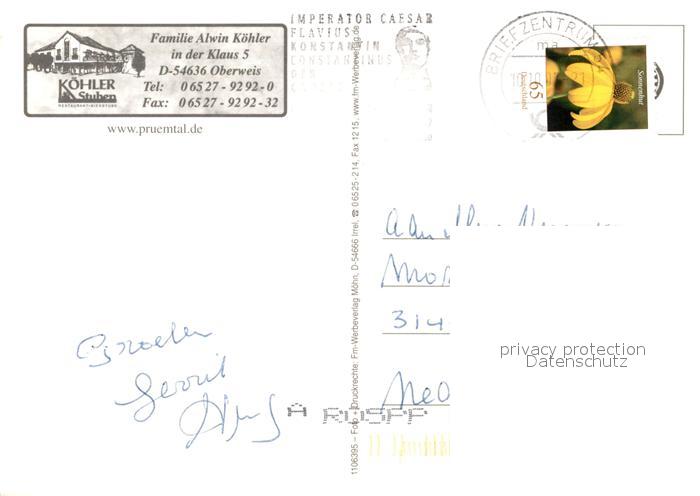 Familie Alwin Köhler
in der Klaus 5
D-54636 Oberweis
Tel: 0 65 27 - 92 92 - 0
Fax: 0 65 27 - 92 92 - 32
KÖHLER
Stuben
RESTAURANT • BIERSTUBE
www.pruemtal.de
IMPERATOR CAESAR
FLAVIUS
KONSTANTIN
CONSTANTINUS
BRIEFZENTRUM
ma
Sonnenhut
65
Deutschland
1106395 – Foto + Druckrechte: Fm-Werbeverlag Möhn, D-54666 Irrel, ☎ 0 65 25 - 214, Fax 1215. www.fm-Werbeverlag.de
314
privacy protection
Datenschutz
Groeten
Gerrit